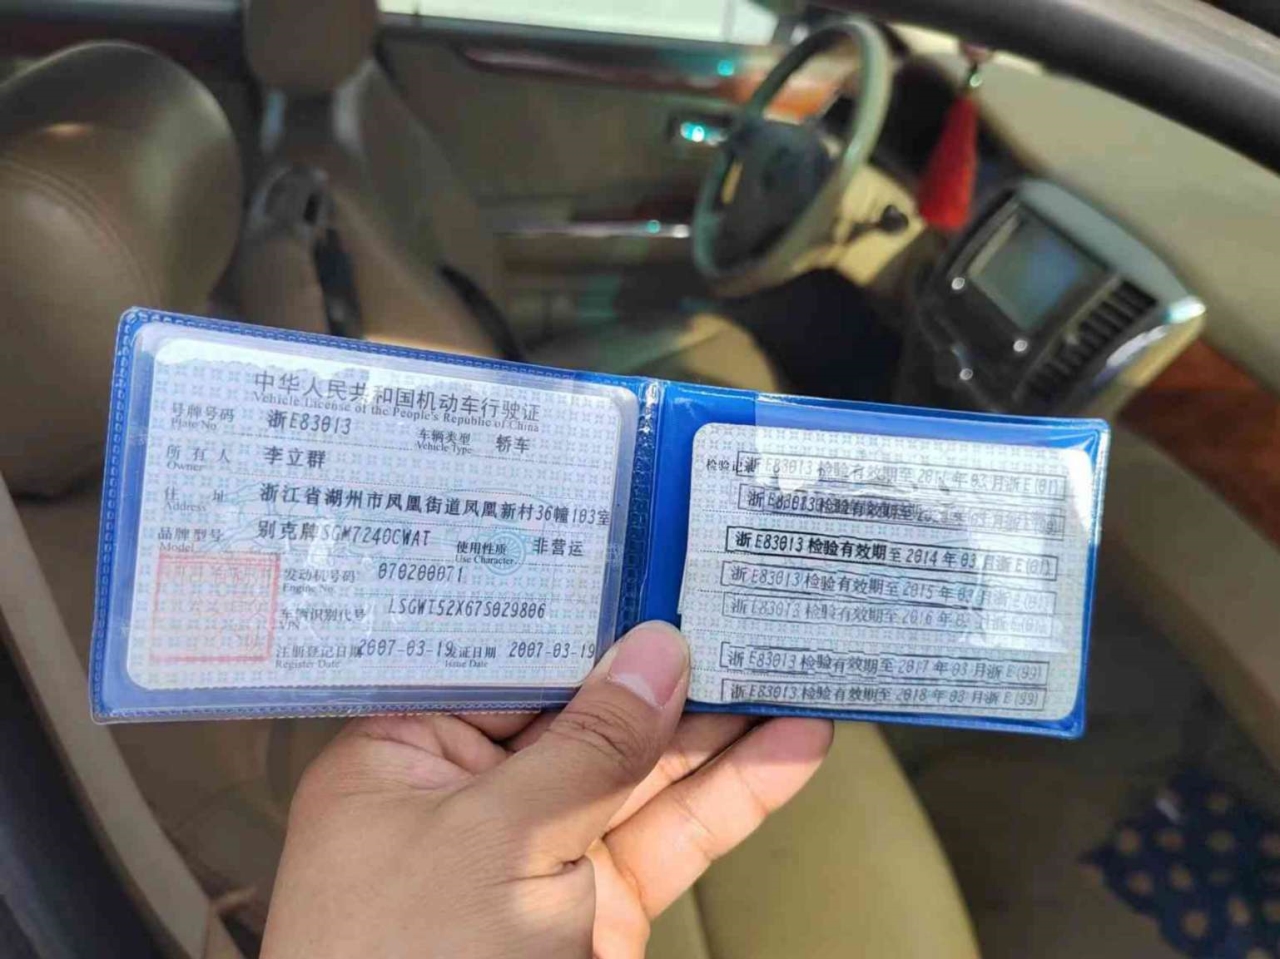 中华人民共和国机动车行驶证
Vehicle License of the People's Republic of China
号牌号码 浙E83013 车辆类型 轿车
Plate No. Vehicle Type
所有人 李立群
Owner
住址 浙江省湖州市凤凰街道凤凰新村36幢103室
Address
品牌型号 别克牌SGM7240CWAT 使用性质 非营运
Model Use Character
发动机号码 070200071
Engine No.
车辆识别代号 LSGWT52X67S029806
VIN
注册登记日期 2007-03-19 发证日期 2007-03-19
Register Date Issue Date
检验记录 浙E83013 检验有效期至 年03月浙E(01)
浙E83013检验有效期至
浙E83013检验有效期至2014年03月浙E(01)
浙E83013检验有效期至2015年03月浙E(01)
浙E83013检验有效期至2016年
浙E83013检验有效期至2017年03月浙E(99)
浙E83013检验有效期至2018年03月浙E(99)